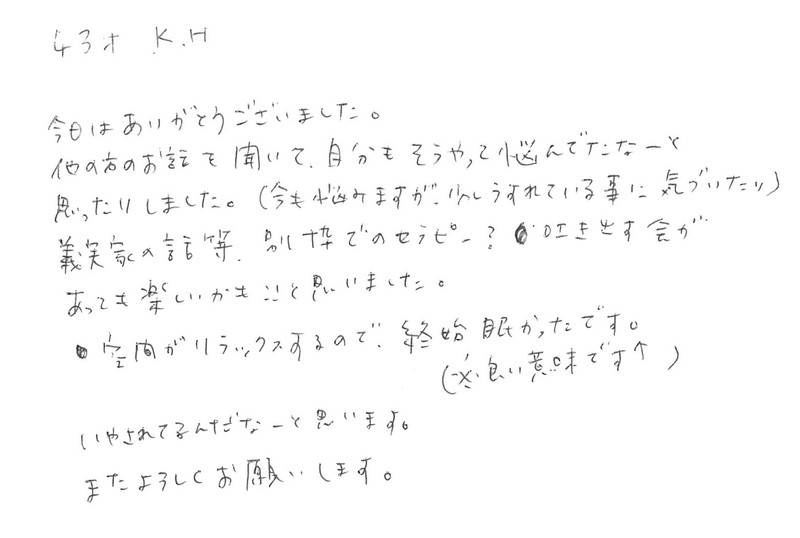 43才 K.H
今日はありがとうございました。
他の方のお話を聞いて、自分もそうやって悩んでたなーと
思ったりしました。(今も悩みますが、少しうすれている事に気づいたり)
義実家の話等、別枠でのセラピー?吐き出す会が
あっても楽しいかも!!と思いました。
空間がリラックスするので、終始眠かったです。
(※良い意味です↑)
いやされてるんだなーと思います。
またよろしくお願いします。